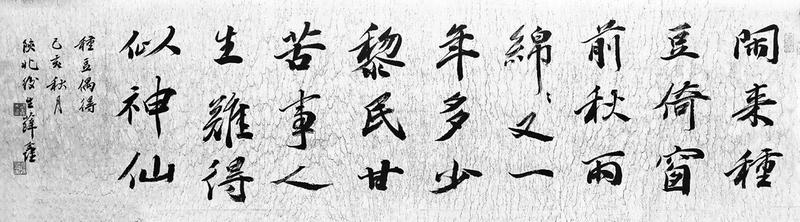 閑来種
豆倚窗
前秋雨
綿〻又一
年多少
黎民甘
苦事人
生難得
似神仙
種豆偶得
己亥秋月
陝北後生薛